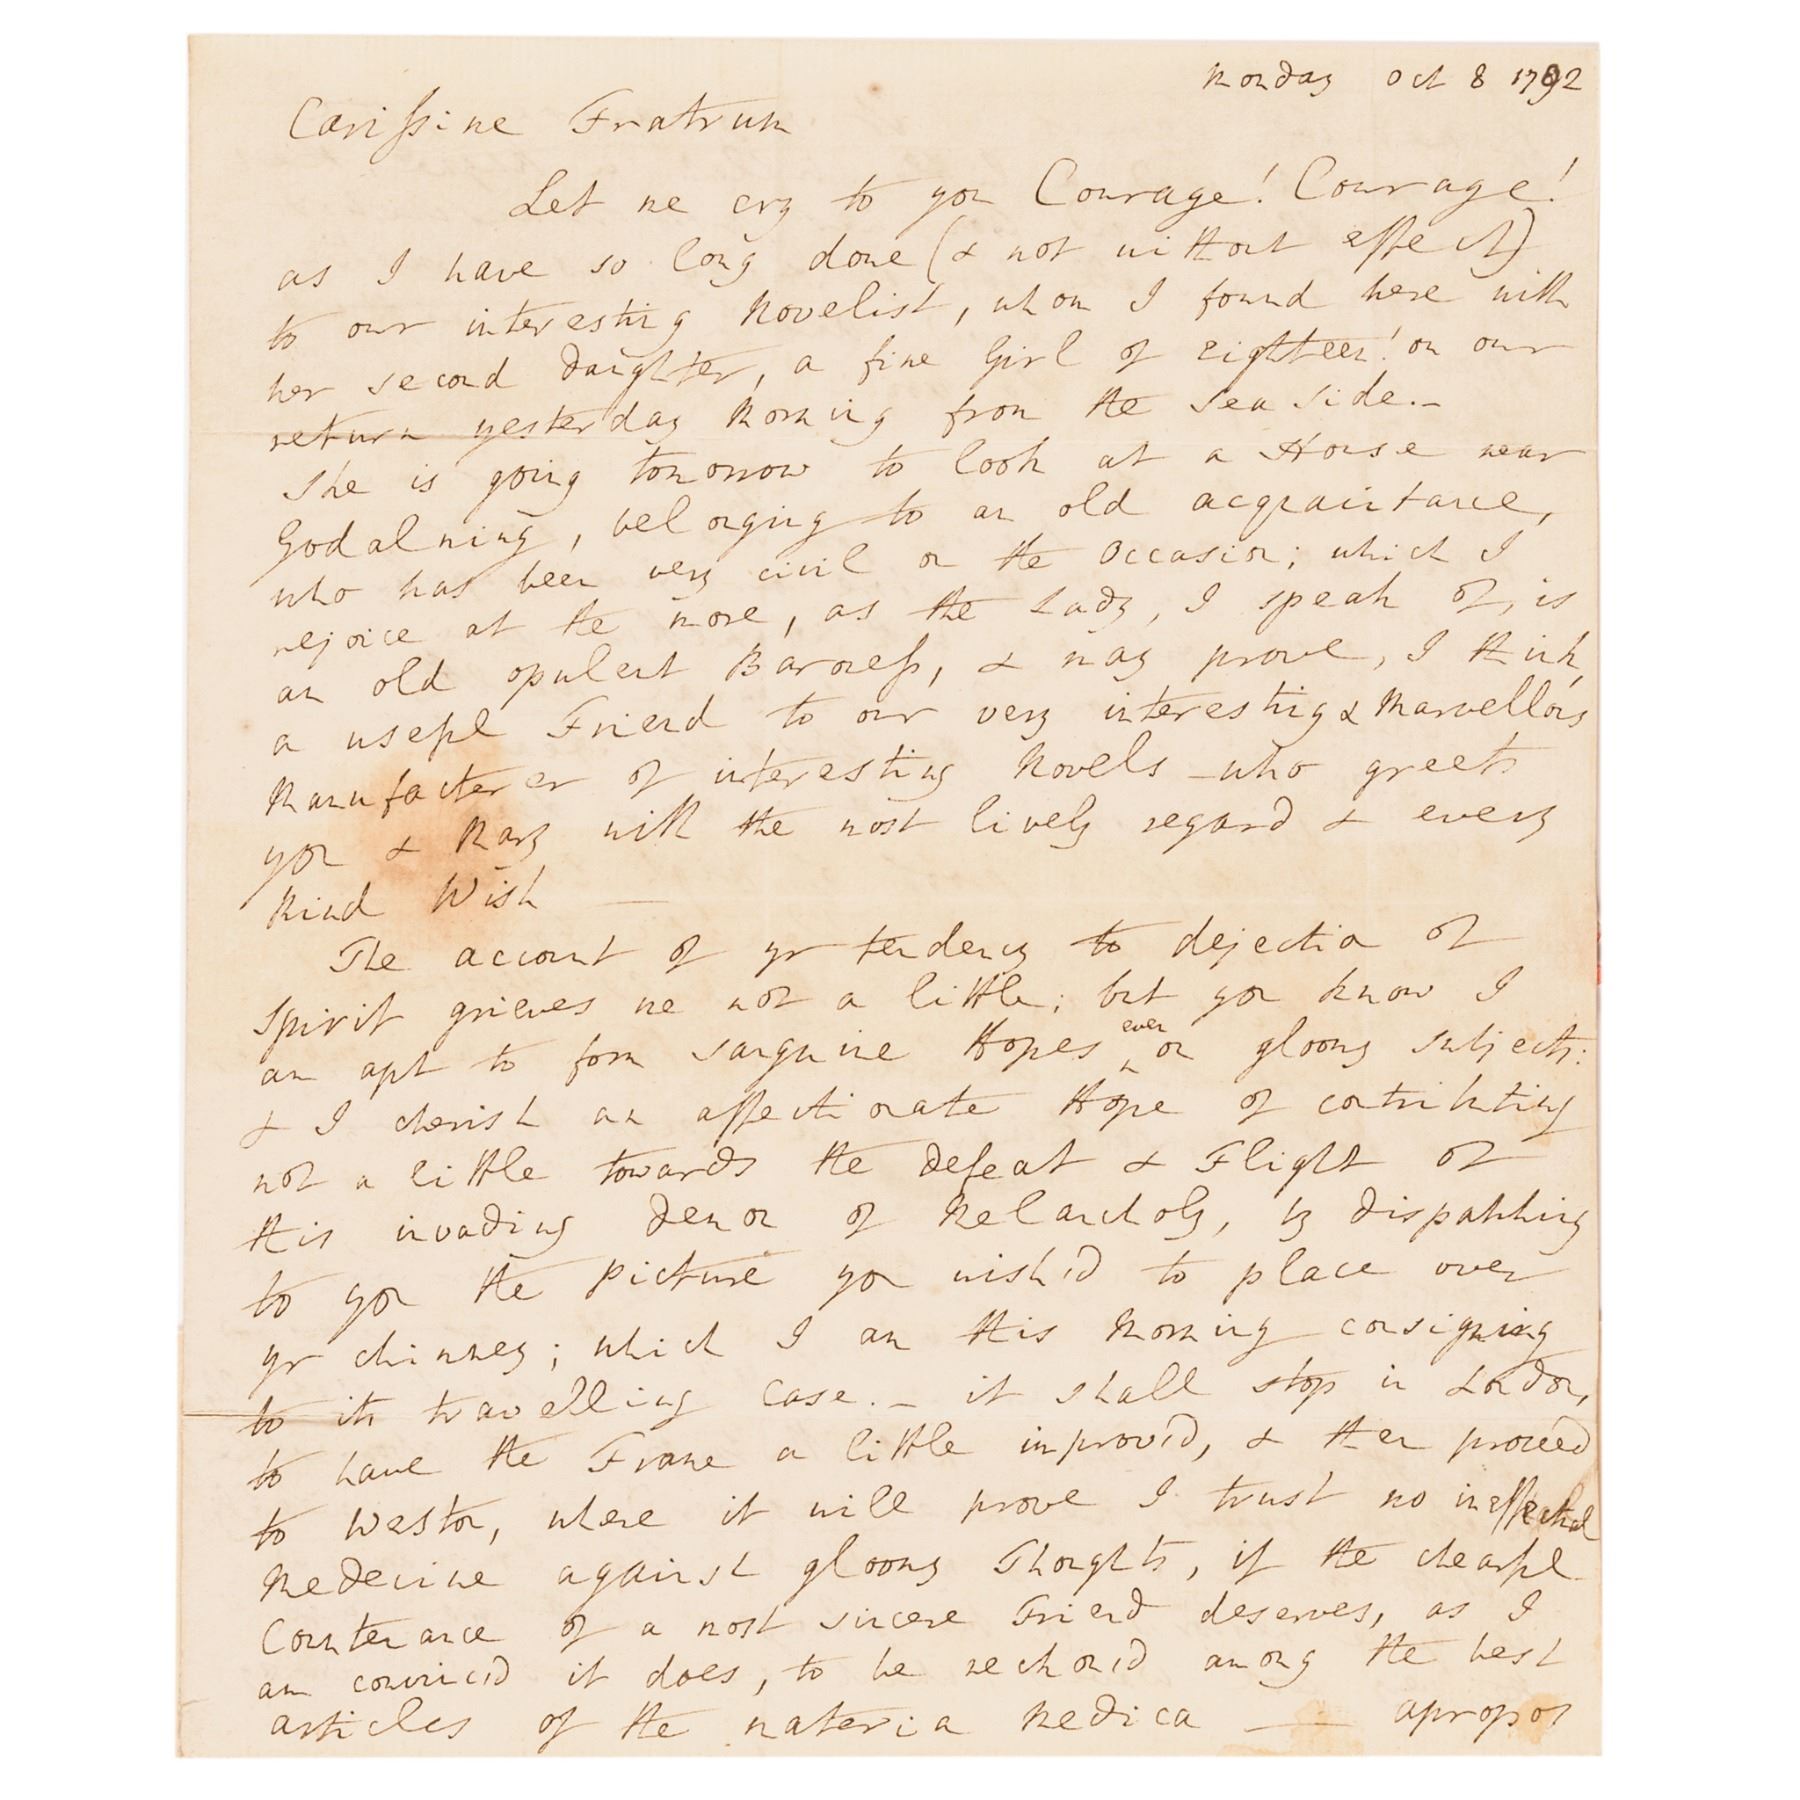 Monday Oct 8 1792
Carissime Fratrum
Let me cry to you Courage! Courage!
as I have so long done (& not without effect)
to our interesting Novelist, whom I found here with
her second daughter, a fine Girl of eighteen! on our
return yesterday Morning from the Sea Side._
She is going tomorrow to look at a House near
Godalming, belonging to an old acquaintance,
who has been very civil on the Occasion; which I
rejoice at the more, as the Lady, I speak of, is
an old opulent Baroness, & may prove, I think,
a useful Friend to our very interesting & Marvellous
Manufacterer of interesting Novels _ who greets
you & Mary with the most lively regard & every
Kind Wish —
The account of yr tendency to dejection of
Spirit grieves me not a little; but you know I
am apt to form sanguine Hopes even on gloomy subjects:
& I cherish an affectionate Hope of contributing
not a little towards the defeat & Flight of
this invading demon of Melancholy, by dispatching
to you the Picture you wish'd to place over
yr chimney; which I am this Morning consigning
to its travelling Case._ it shall stop in London,
to have the Frame a little improv'd, & then proceed
to Weston, where it will prove I trust no ineffectual
Medecine against gloomy Thoughts, if the chearful
Countenance of a most sincere Friend deserves, as I
am convinc'd it does, to be reckon'd among the best
articles of the materia Medica — apropos